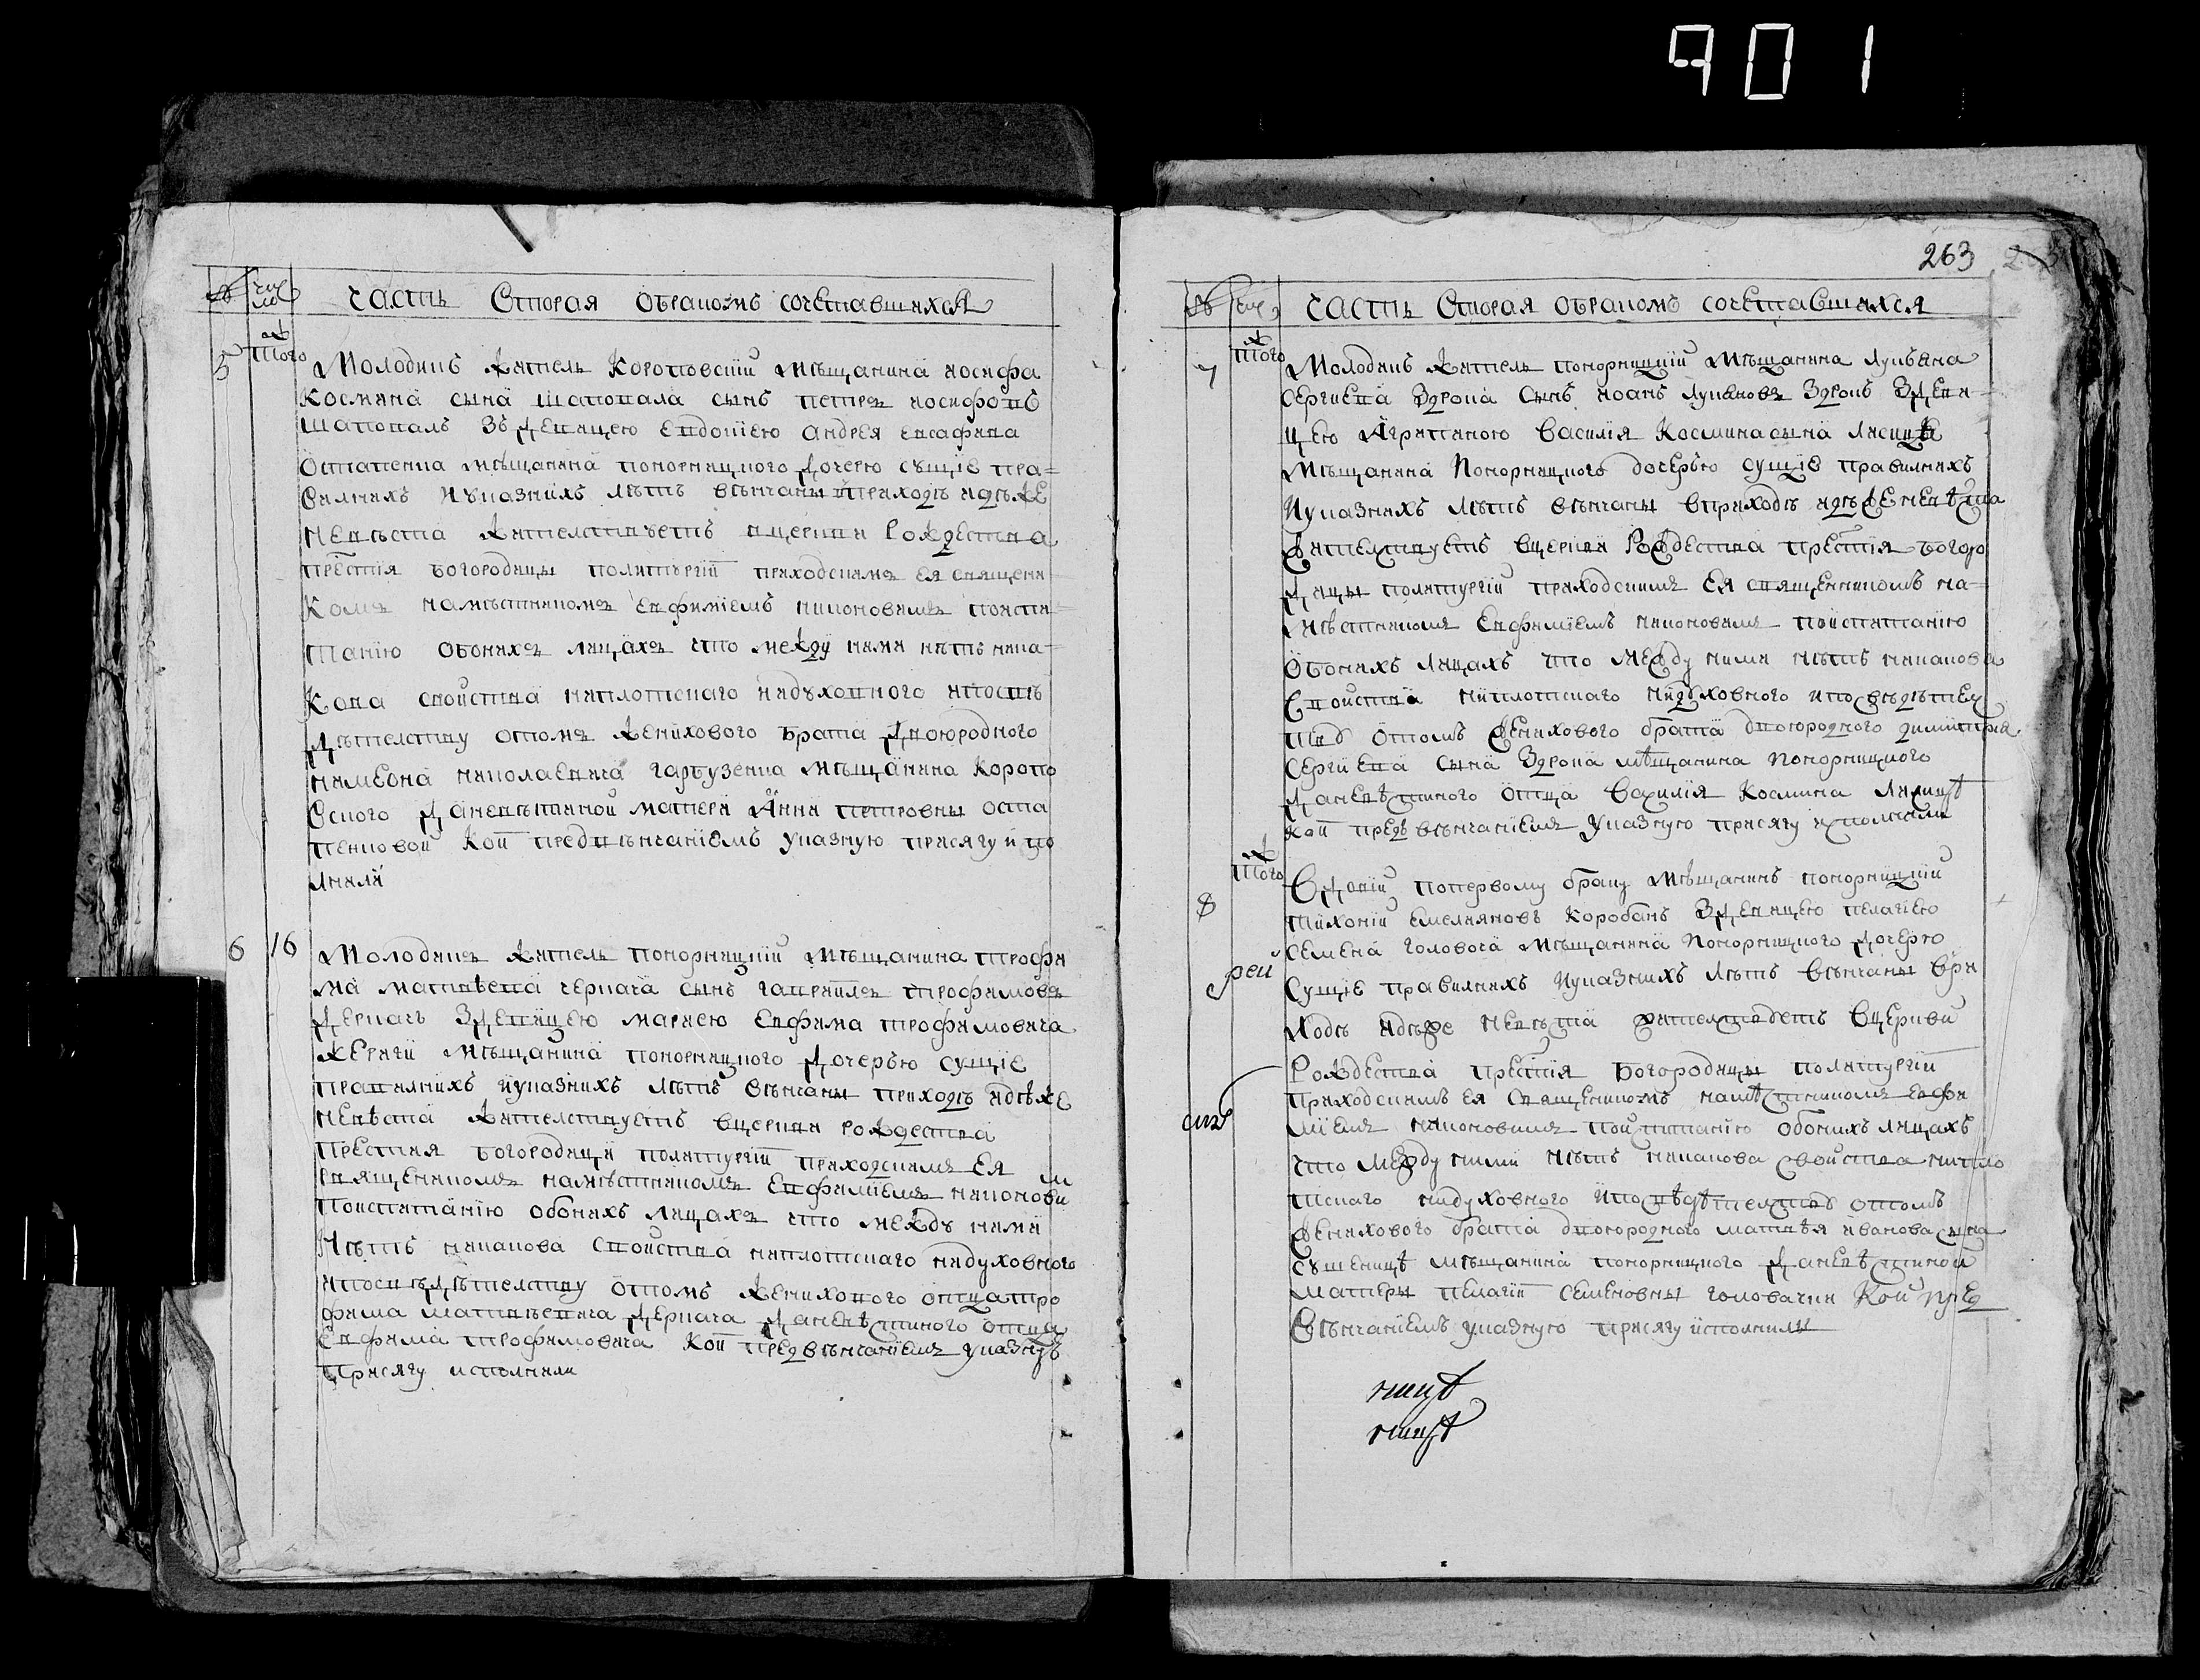 901
№ число часть вторая обракомъ сочетавшихся
5 тогож Молодикъ житель Короповскій Мѣщанина иосифа
Космина сына Шаповала сынъ петръ иосифовъ
Шаповалъ зъ дѣвицею евдокіею андрея
мѣщанина понорницкого дочерю сущіе пра=
вилнихъ иуказнихъ лѣтъ вѣнчаны вприходѣ идѣже
невѣста жителствуетъ вцеркви Рождества
престія богородицы политургіи приходскимъ ея священи
комъ намѣстникомъ евфиміемъ никоновимъ поиспи=
танію обоихъ лицахъ что между ними нѣтъ ника=
кова свойства ниплотскаго нидуховного ипосвѣ
дѣтелству отомъ женихового брата двоюродного
симеона николаевича гарбузенка мѣщанина коропо
вского данивѣстиной матери Анни петровны оста
пенковой кои предвѣнчаніемъ указную присягу испо
лнили
6 16 Молодикъ житель понорницкій мѣщанина трофи
ма матвѣева деркача сынъ гавріилъ трофимовъ
деркачъ здѣвицею мариею евфима трофимовича
мѣщанина понорницкого дочерью сущіе
правилнихъ иуказнихъ лѣтъ вѣнчаны приходѣ идѣже
невѣста жителствуетъ вцеркви рождества
престія богородици политургіи приходскимъ ея
священикомъ намѣстникомъ евфиміемъ никонови м
поиспитанію обоихъ лицахъ что между ними
Нѣтъ никакова свойства ниплотскаго нидуховного
ипосвѣдѣтелству отомъ женихового отца тро
фима матвѣевича деркача даневѣстиного отца
евфима трофимовича кои предвѣнчаніемъ указную
присягу исполнили
263
№ чис часть вторая обракомъ сочетавшихся
7 тогож Молодикъ житель понорницкій Мѣщанина лукьяна
сергиева Здрока сынъ иоанъ лукяновъ Здрокъ здѣви=
цею Агрипиною василія Космина сына лисици
Мѣщанина понорницкого дочерью сущіе правилнихъ
Иуказнихъ лѣтъ вѣнчаны вприходѣ идѣже невѣста
жителствуетъ вцеркви Рождества престія богоро
дицы политургіи приходскимъ ея священникомъ на=
мѣстникомъ евфиміемъ никоновимъ поиспитанію
обоихъ лицахъ что между ними нѣтъ никакова
свойства ниплотскаго нидуховного ипосвѣдѣтел
ству отомъ женихового брата двоюродного димитрія
сергиева сына Здрока мѣщанина понорницкого
даневѣстиного отца василія Космина лисици
кои предъ вѣнчаніемъ указную присягу исполнили
8 тогож вдовій попервому браку мѣщанинъ понорницкій
тихоній емеляновъ коробанъ здѣвицею пелагіею
семена головача мѣщанина понорницкого дочерю
сущіе правилнихъ иуказнихъ лѣтъ вѣнчаны вѣри
ходѣ идѣже невѣста жителствуетъ вцеркви
Рождества престія богородицы политургіи
приходскимъ ея священикомъ намѣстникомъ евфи
міемъ никоновимъ поиспитанію обоихъ лицахъ
что между ними нѣтъ никакова свойства нипло
тскаго нидуховного ипосвѣдѣтелству отомъ
женихового брата двоюродного матвѣя иванова сина
мѣщанина понорницкого даневѣстиной
матери пелагіи семеновны головачки кои пред
вѣнчаніемъ указную присягу исполнили